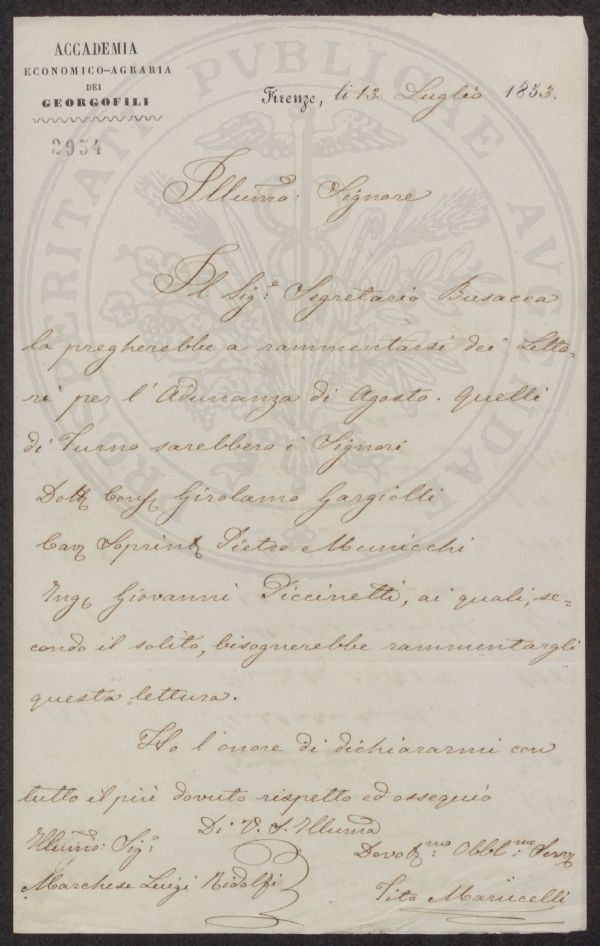 ACCADEMIA
ECONOMICO-AGRARIA
DEI
GEORGOFILI
2954
Firenze, li 13 Luglio 1853.
PROSPERITATI PVBLICAE AVGENDAE
Illumo: Signore
Il Sig:e Segretario Busacca
la pregherebbe a rammentarsi dei Letto=
ri per l' Adunanza di Agosto. Quelli
di Turno sarebbero i Signori
Dott Cons Girolamo Gargiolli
Cav Soprint Pietro Municchi
Ing Giovanni Piccinetti, ai quali, se=
condo il solito, bisognerebbe rammentargli
questa lettura.
Ho l'onore di dichiararmi con
tutto il più dovuto rispetto ed ossequio
Di V. S. Illuma
Illumo: Sig:e
Devotmo: Obbl:mo Serv
Marchese Luigi Ridolfi
Vito Marucelli